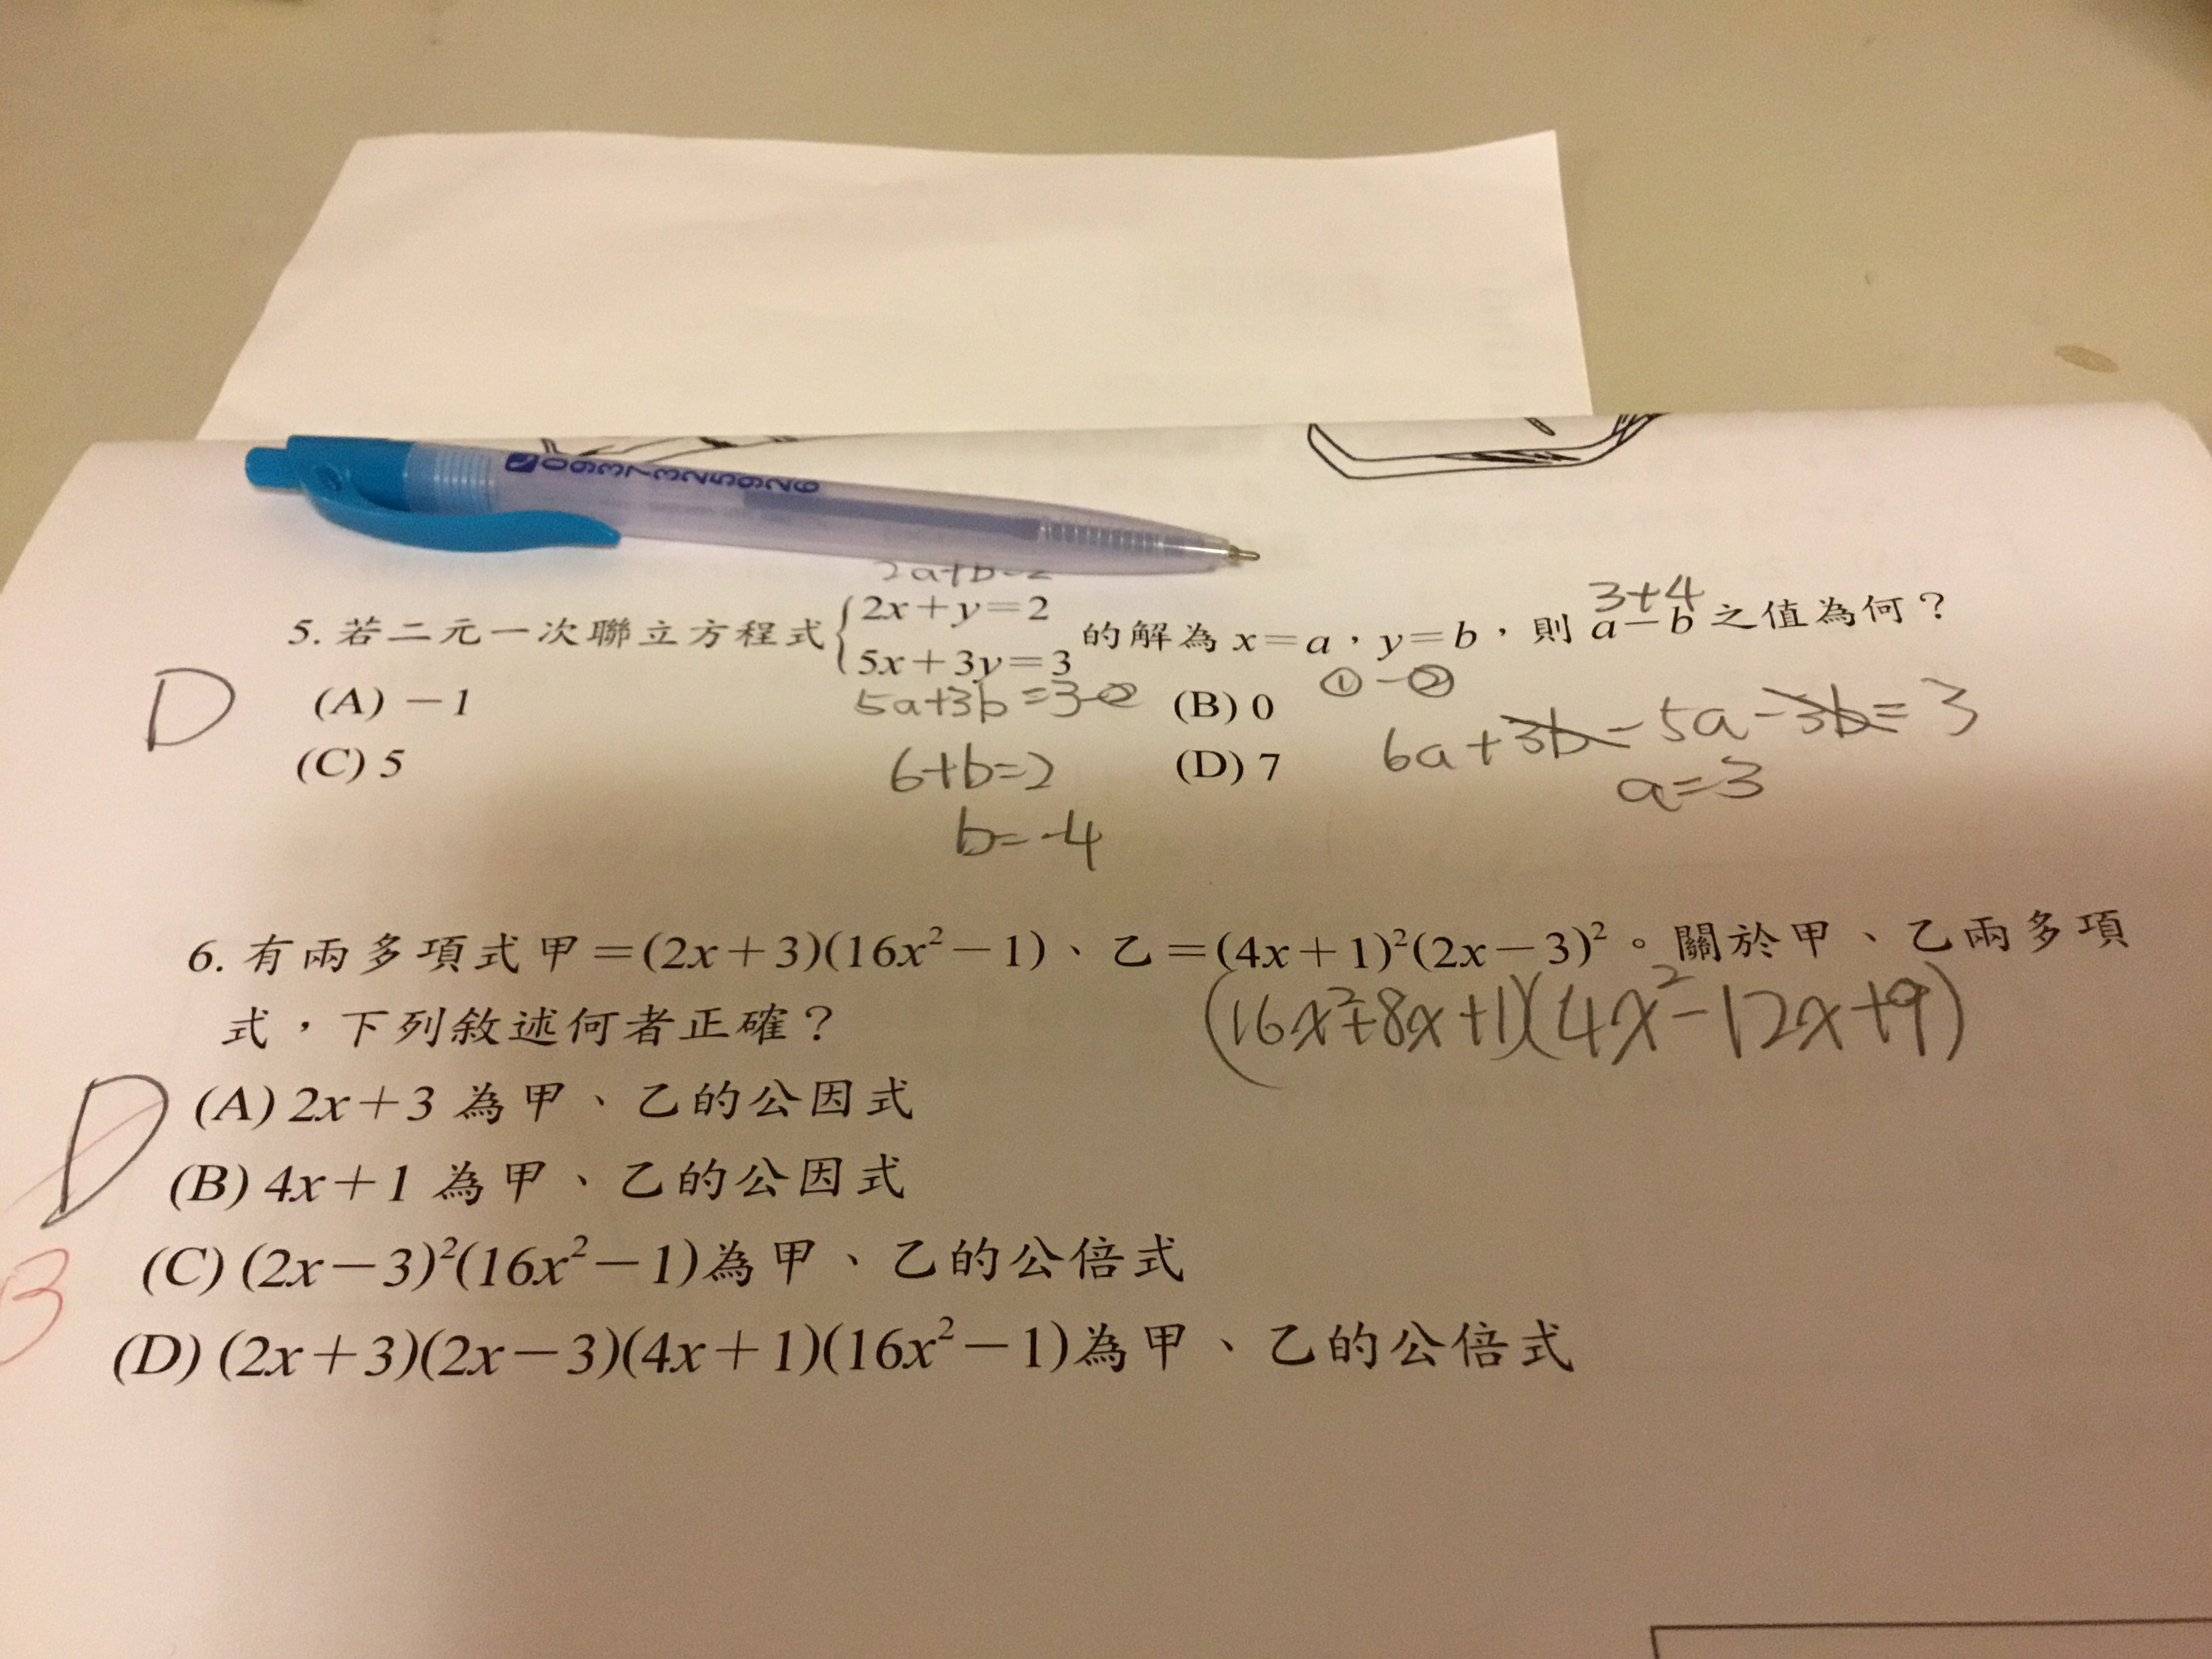 2a+b=2
5. 若二元一次聯立方程式{2x+y=2 的解為 x=a，y=b，則 a-b 之值為何？
5x+3y=3
3+4
D
(A) -1
5a+3b=3-②
(B) 0
①-②
6a+3b-5a-3b=3
(C) 5
6+b=2
(D) 7
a=3
b=-4
6. 有兩多項式甲=(2x+3)(16x²-1)、乙=(4x+1)²(2x-3)²。關於甲、乙兩多項
式，下列敘述何者正確？
(16x²+8x+1)(4x²-12x+9)
D
(A) 2x+3 為甲、乙的公因式
(B) 4x+1 為甲、乙的公因式
B
(C) (2x-3)²(16x²-1)為甲、乙的公倍式
(D) (2x+3)(2x-3)(4x+1)(16x²-1)為甲、乙的公倍式